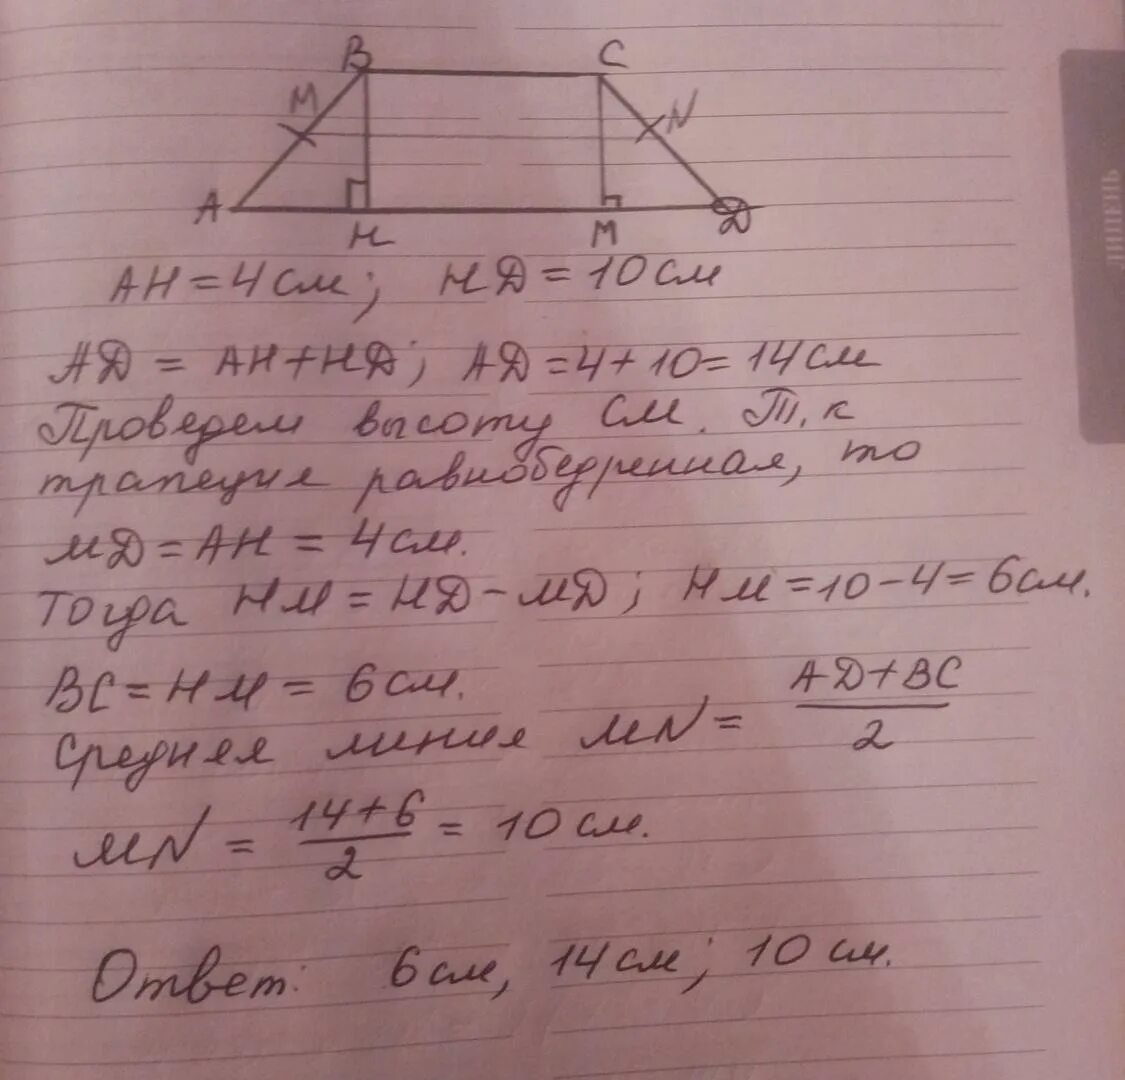 B C
M N
A H M Д
AH = 4 см; HД = 10 см
AД = AH + HД; AД = 4 + 10 = 14 см
Проведем высоту CM. Т.к
трапеция равнобедренная, то
MД = AH = 4 см.
Тогда HM = HД - MД; HM = 10 - 4 = 6 см.
BC = HM = 6 см.
Средняя линия MN = (AД + BC) / 2
MN = (14 + 6) / 2 = 10 см.
Ответ: 6 см, 14 см; 10 см.
ЛИПЕНЬ